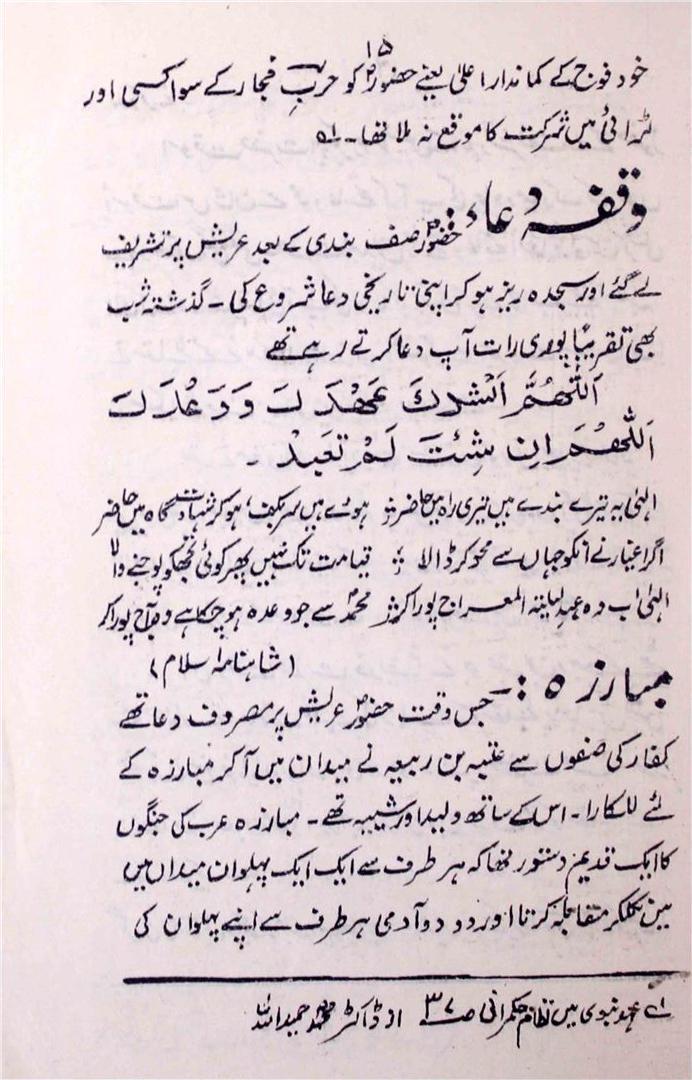 ۱۵
خود فوج کے کماندار اعلیٰ یعنے حضورؐ کو حربِ فجار کے سوا کسی اور
لڑائی میں شرکت کا موقع نہ ملا تھا۔ ؎۱
وقفہ دعاء : حضورؐ صف بندی کے بعد عریش پر تشریف
لے گئے اور سجدہ ریز ہوکر اپنی تاریخی دعا شروع کی۔ گذشتہ شب
بھی تقریباً پوری رات آپ دعا کرتے رہے تھے
اَللّٰهُمَّ اَنْشُدُكَ عَهْدَكَ وَ وَعْدَكَ
اَللّٰهُمَّ اِنْ شِئْتَ لَمْ تُعْبَدْ ۔
الٰہی یہ تیرے بندے ہیں تیری راہ میں حاضر ؛ ہوئے ہیں سر بکف ہوکر شہادت گاہ میں حاضر
اگر اغیار نے انکو جہاں سے محو کر ڈالا ؛ قیامت تک نہیں پھر کوئی تجھکو پوجنے والا
الٰہی اب وہ عہد لیلتہ المعراج پورا کر ؛ محمدؐ سے جو وعدہ ہوچکا ہے وہ آج پورا کر
(شاہنامہ اسلام)
مبارزہ :۔ جس وقت حضورؐ عریش پر مصروف دعا تھے
کفار کی صفوں سے عتبہ بن ربیعہ نے میدان میں آکر مبارزہ کے
لئے للکارا۔ اس کے ساتھ ولید اور شیبہ تھے۔ مبارزہ عرب کی جنگوں
کا ایک قدیم دستور تھا کہ ہر طرف سے ایک ایک پہلوان میدان میں
میں نکلکر مقابلہ کرتا اور دو دو آدمی ہر طرف سے اپنے پہلوان کی
؎۱ عہد نبوی میں نظام حکمرانی صـ ۳۷ از ڈاکٹر محمد حمید اللہ